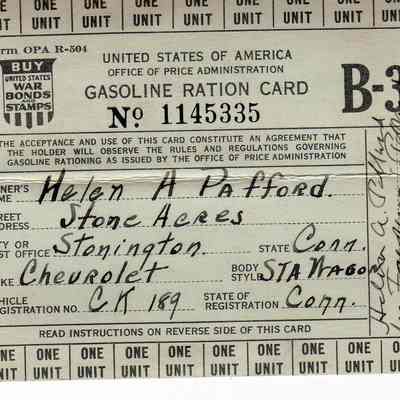 ONE ONE ONE ONE ONE ONE ONE ONE
UNIT UNIT UNIT UNIT UNIT UNIT UNIT UNIT
rm OPA R-504
BUY
UNITED STATES
WAR
BONDS
AND
STAMPS
UNITED STATES OF AMERICA
OFFICE OF PRICE ADMINISTRATION
GASOLINE RATION CARD
No 1145335
B-3
THE ACCEPTANCE AND USE OF THIS CARD CONSTITUTE AN AGREEMENT THAT
THE HOLDER WILL OBSERVE THE RULES AND REGULATIONS GOVERNING
GASOLINE RATIONING AS ISSUED BY THE OFFICE OF PRICE ADMINISTRATION
NER'S NAME Helen A Pafford.
STREET ADDRESS Stone Acres
CITY OR POST OFFICE Stonington. STATE Conn.
MAKE Chevrolet BODY STYLE STA WAGON
VEHICLE REGISTRATION NO. CK 189 STATE OF REGISTRATION Conn.
READ INSTRUCTIONS ON REVERSE SIDE OF THIS CARD
ONE ONE ONE ONE ONE ONE ONE ONE
UNIT UNIT UNIT UNIT UNIT UNIT UNIT UNIT
Helen A.